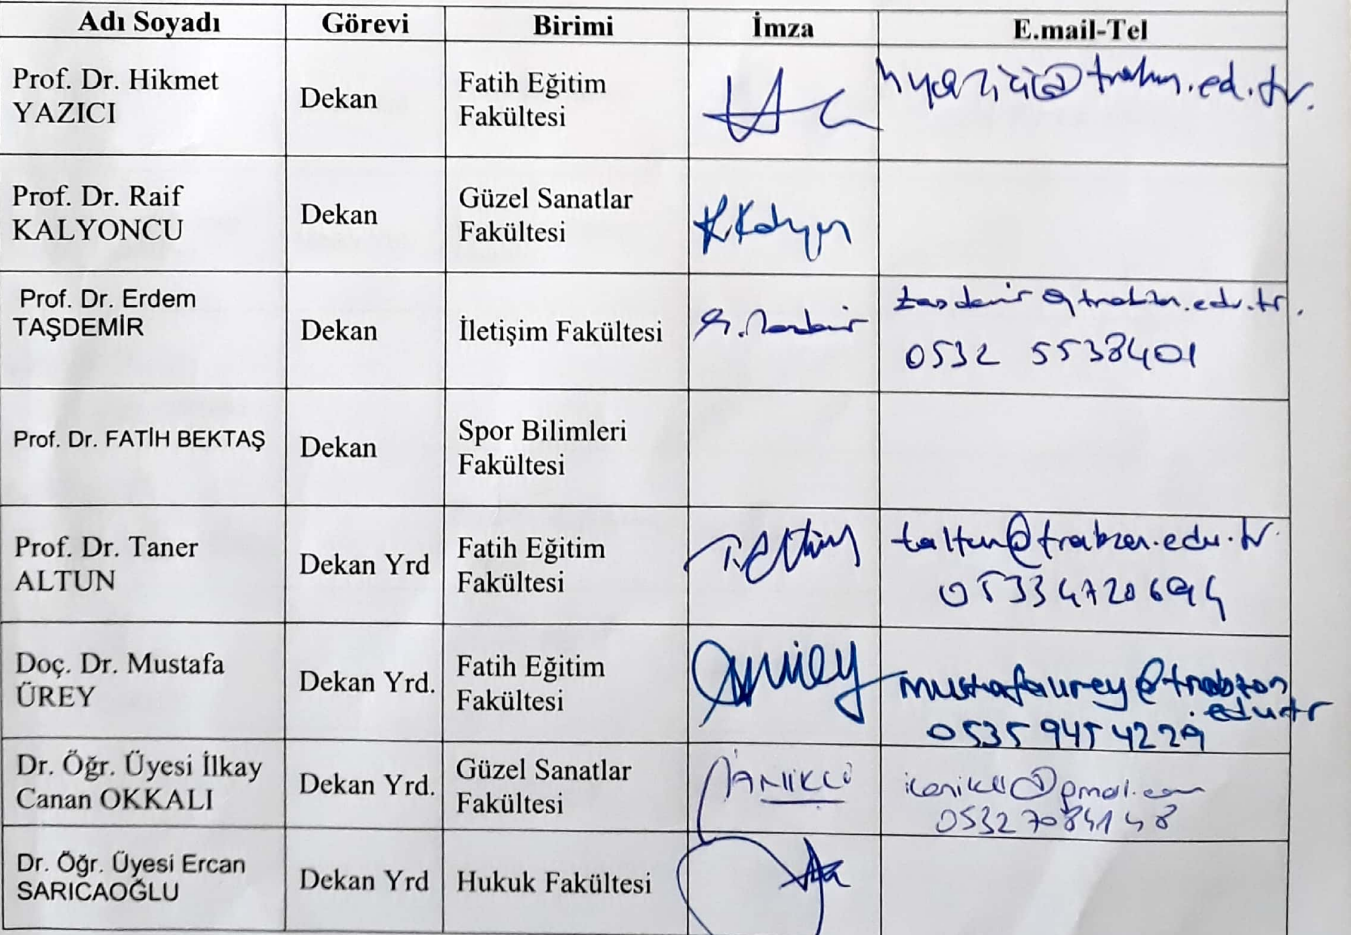 Adı Soyadı Görevi Birimi İmza E.mail-Tel
Prof. Dr. Hikmet
YAZICI
Dekan
Fatih Eğitim
Fakültesi
Prof. Dr. Raif
KALYONCU
Dekan
Güzel Sanatlar
Fakültesi
Prof. Dr. Erdem
TAŞDEMİR
Dekan
İletişim Fakültesi
tasdemir@trabzon.edu.tr.
0532 5538401
Prof. Dr. FATİH BEKTAŞ
Dekan
Spor Bilimleri
Fakültesi
Prof. Dr. Taner
ALTUN
Dekan Yrd
Fatih Eğitim
Fakültesi
taltun@trabzon.edu.tr
05334720694
Doç. Dr. Mustafa
ÜREY
Dekan Yrd.
Fatih Eğitim
Fakültesi
mustafaurey@trabzon
.edu.tr
0535 945 4229
Dr. Öğr. Üyesi İlkay
Canan OKKALI
Dekan Yrd.
Güzel Sanatlar
Fakültesi
05327084148
Dr. Öğr. Üyesi Ercan
SARICAOĞLU
Dekan Yrd
Hukuk Fakültesi